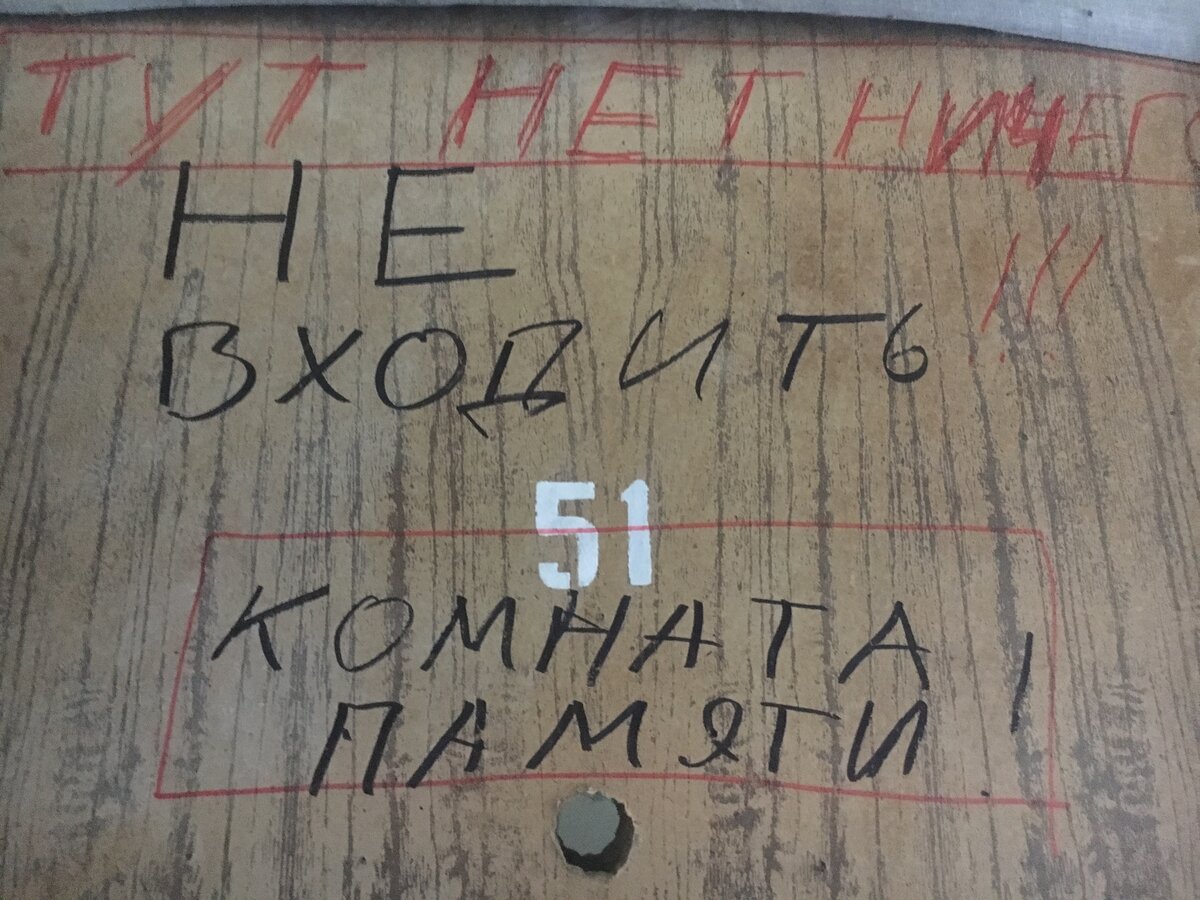 ТУТ НЕТ НИЧЕГО
НЕ
!!!
ВХОДИТЬ
51
КОМНАТА
ПАМЯТИ !